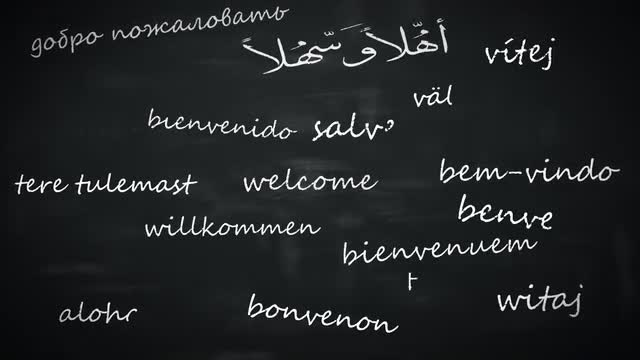 добро пожаловать
أهْلاً وَسَهْلاً
vítej
väl
bienvenido
salv
tere tulemast
welcome
bem-vindo
willkommen
benve
bienvenuem
alohr
bonvenon
witaj